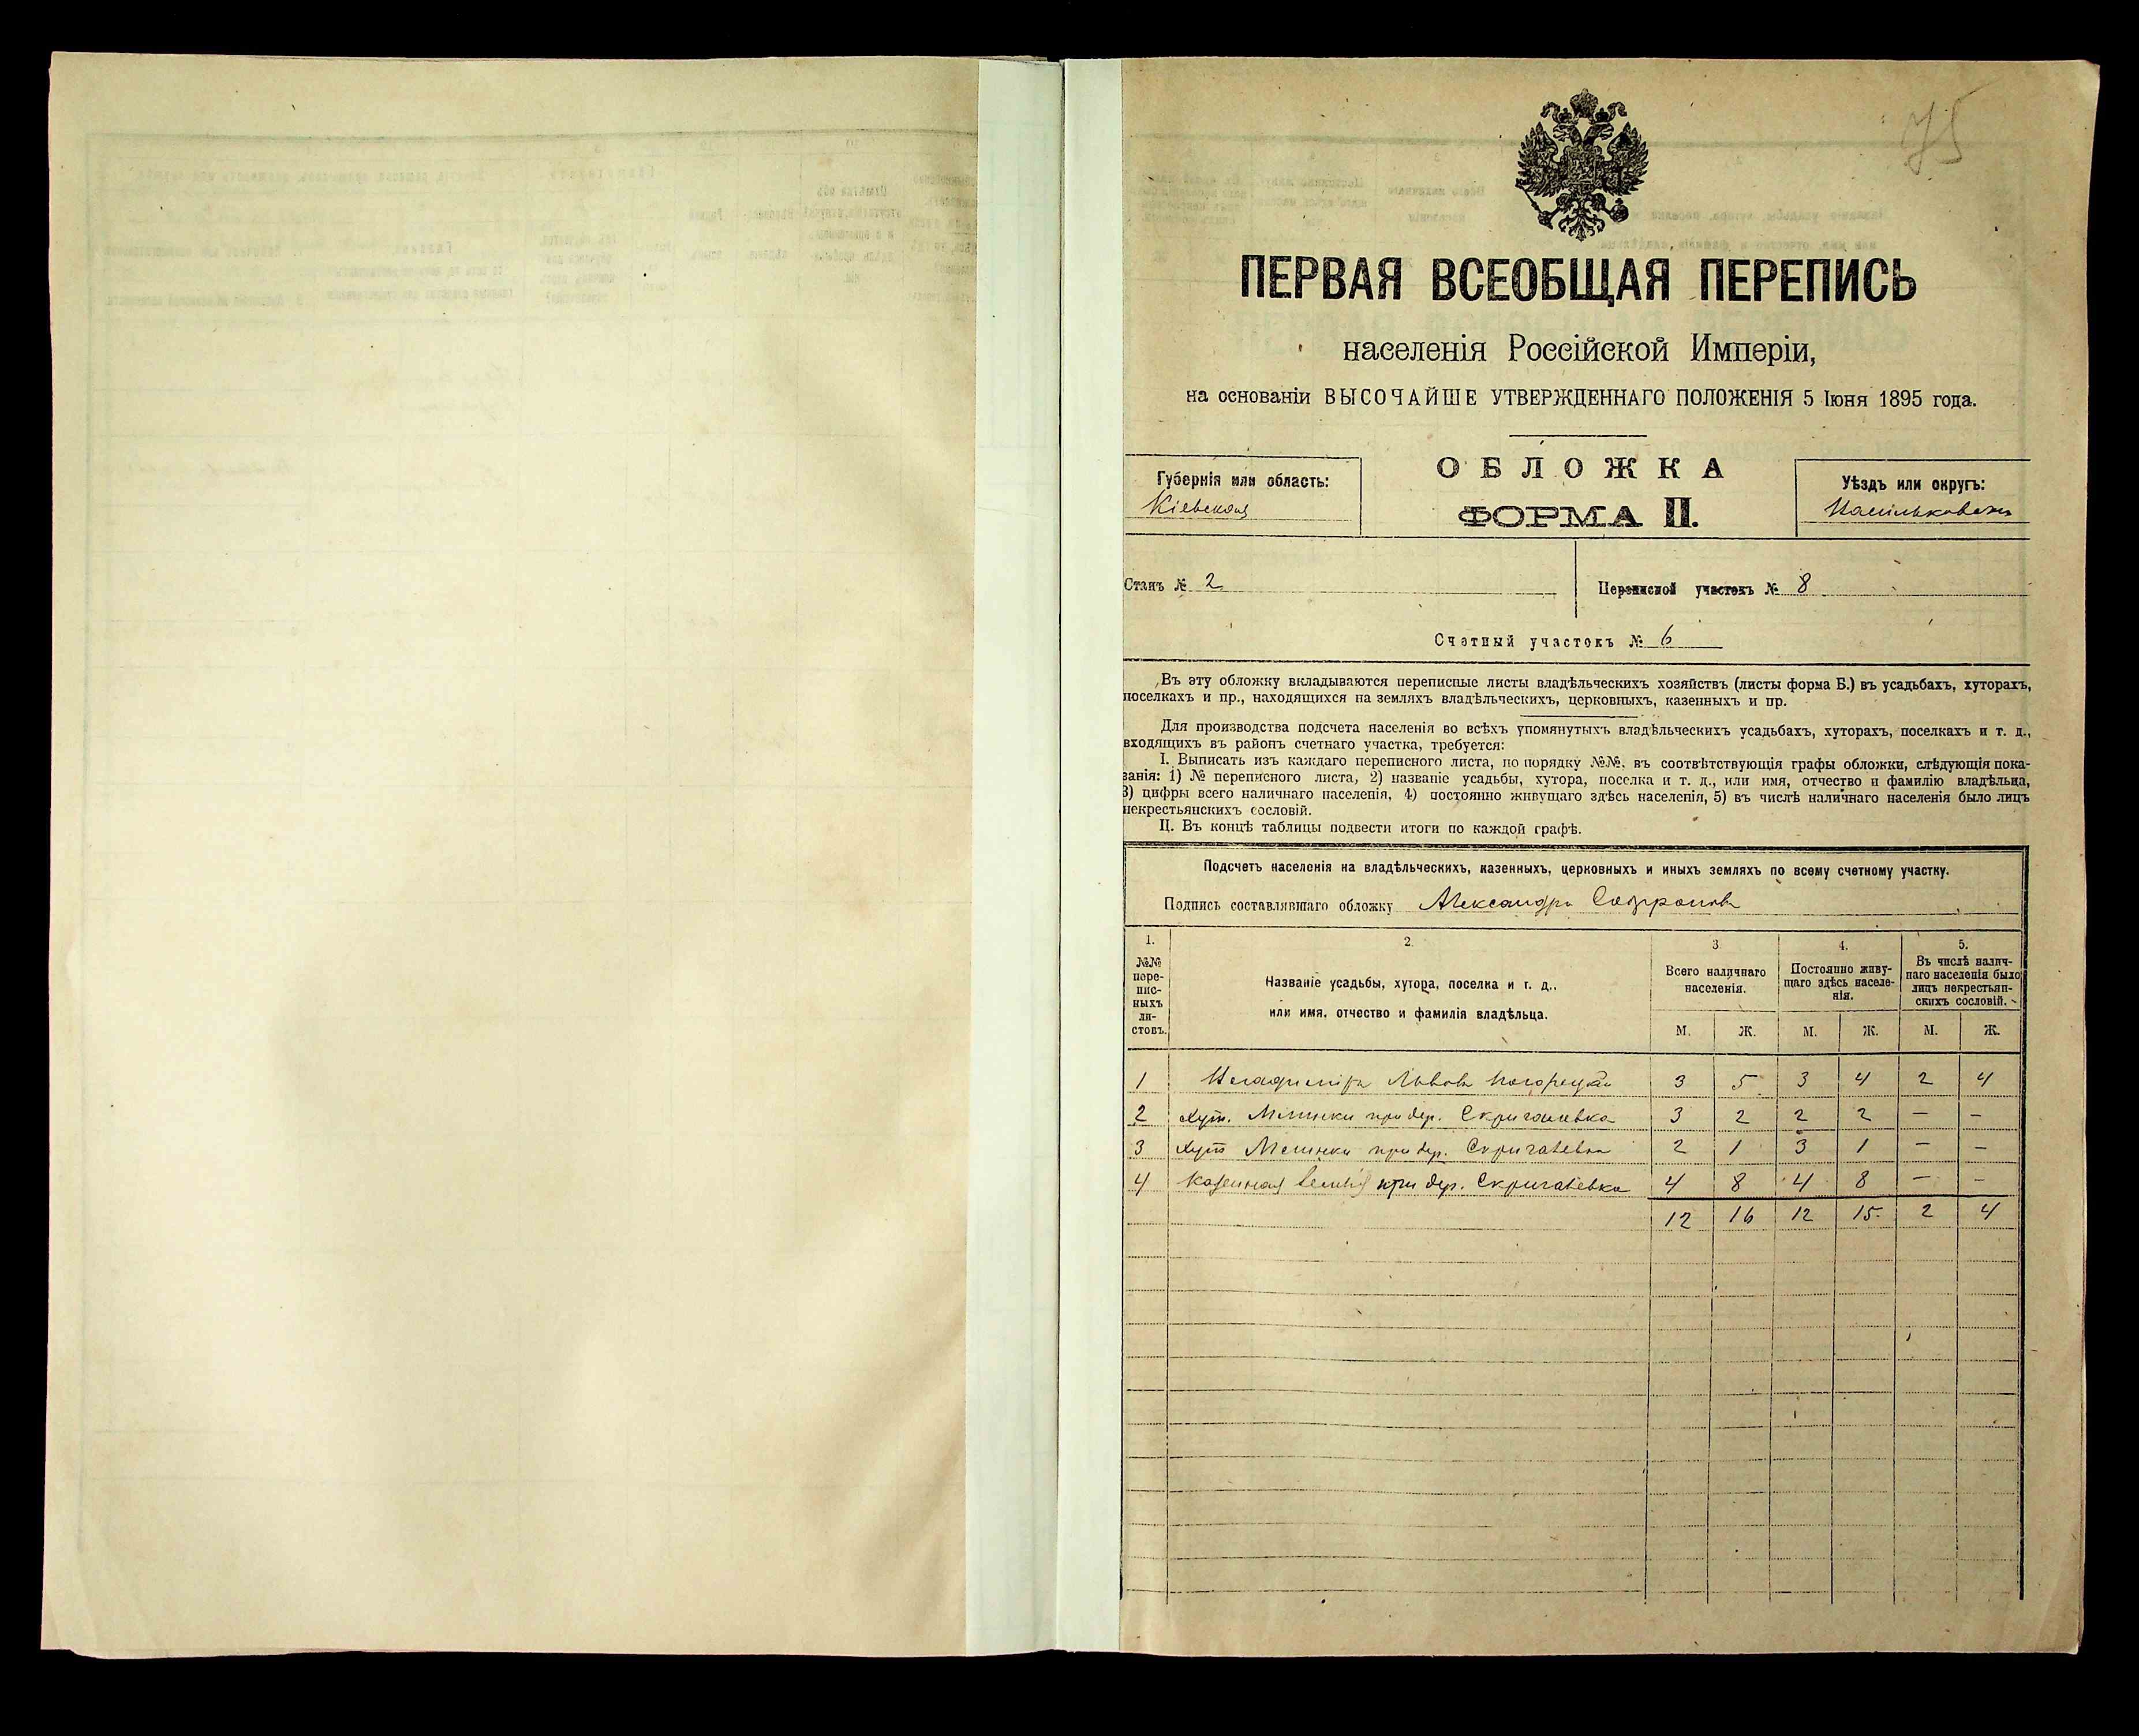 75
ПЕРВАЯ ВСЕОБЩАЯ ПЕРЕПИСЬ
населенія Россійской Имперіи,
на основаніи ВЫСОЧАЙШЕ УТВЕРЖДЕННАГО ПОЛОЖЕНІЯ 5 Іюня 1895 года.
ОБЛОЖКА
Губернія или область:
Кіевская
ФОРМА II.
Уѣздъ или округъ:
Станъ № 2
Переписной участокъ № 8
Счетный участокъ № 6
Въ эту обложку вкладываются переписные листы владѣльческихъ хозяйствъ (листы форма Б.) въ усадьбахъ, хуторахъ,
поселкахъ и пр., находящихся на земляхъ владѣльческихъ, церковныхъ, казенныхъ и пр.
Для производства подсчета населенія во всѣхъ упомянутыхъ владѣльческихъ усадьбахъ, хуторахъ, поселкахъ и т. д.,
входящихъ въ районъ счетнаго участка, требуется:
I. Выписать изъ каждаго переписного листа, по порядку №№, въ соотвѣтствующія графы обложки, слѣдующія пока-
занія: 1) № переписного листа, 2) названіе усадьбы, хутора, поселка и т. д., или имя, отчество и фамилію владѣльца,
3) цифры всего наличнаго населенія, 4) постоянно живущаго здѣсь населенія, 5) въ числѣ наличнаго населенія было лицъ
некрестьянскихъ сословій.
II. Въ концѣ таблицы подвести итоги по каждой графѣ.
Подсчетъ населенія на владѣльческихъ, казенныхъ, церковныхъ и иныхъ земляхъ по всему счетному участку.
Подпись составлявшаго обложку Александръ
1.
№№
пере-
пис-
ныхъ
ли-
стовъ.
2.
Названіе усадьбы, хутора, поселка и т. д.,
или имя, отчество и фамилія владѣльца.
3
Всего наличнаго
населенія.
4.
Постоянно живу-
щаго здѣсь населе-
нія.
5.
Въ числѣ налич-
наго населенія было
лицъ некрестьян-
скихъ сословій.
М. Ж. М. Ж. М. Ж.
1 3 5 3 4 2 4
2 Хут. при дер. 3 2 2 2 — —
3 Хут при дер. 2 1 3 1 — —
4 Казенная при дер. 4 8 4 8 — —
12 16 12 15 2 4